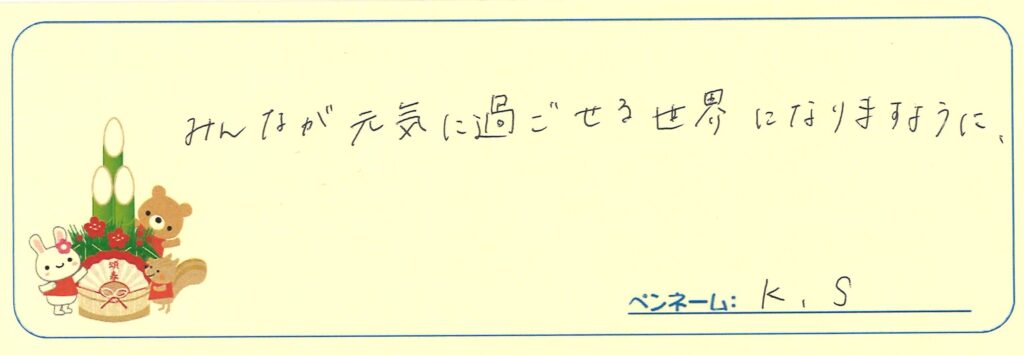 みんなが元気に過ごせる世界になりますように、
頌春
ペンネーム: K, S